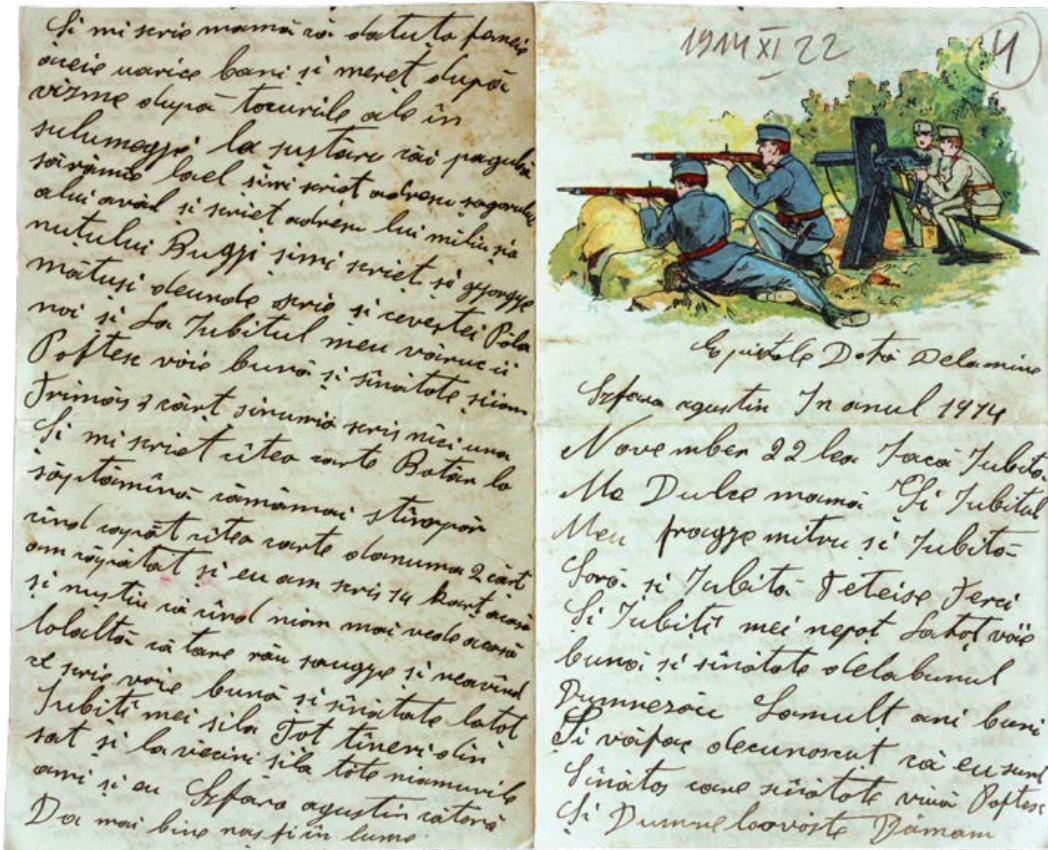 Și mi scrie mamă că datuto
aceie uarice bani si meret după
vizme după tocurile ale în
sulumegye la sustaru căi pagubă
sărămîe loel simi scriet adresu sogorului
alui avăd si scriet adresu lui miliu și a
nuțului Bugji simi scriet și gyorgye
mătuși deunde scrie și Păla
noi și La Iubitul meu văruc ii
Poftesc vóie bună și sînătate siiam
Trimăs 3 cărt sinumio scris nici una
Si mi scriet cîtea carte Batăr la
săptămînă cămămai stîmpăr
cînd capăt cîtea carte danuma 2 cărt
am căpătat și eu am scris 14 kart acasă
si nuștiu că cînd niom mai vede acasă
lolaltă că tare rău saugye și neavînd
scrie voie bună și sînătate latot
Iubiți mei sila Tot tineri din
sat și la vecini sila tóte niamurile
ami și eu Szfara agustin cătără
Da mai bine naș fi în lume
1914 XI 22
4
Epistole Dată Delamine
Szfara agustin In anul 1914
November 22 lea Iacă Iubită
Me Dulce mamă Și Iubitul
Meu fragye mitru si Iubită
Soră si Iubită Feteise Terci
Si Iubiți mei nepot Latot vóie
bună si sînătate delabunul
Dumnezău Lamult ani buni
Si văfac decunoscut că eu sunt
Sînătos care sînătate viuă Poftesc
Și Dumne